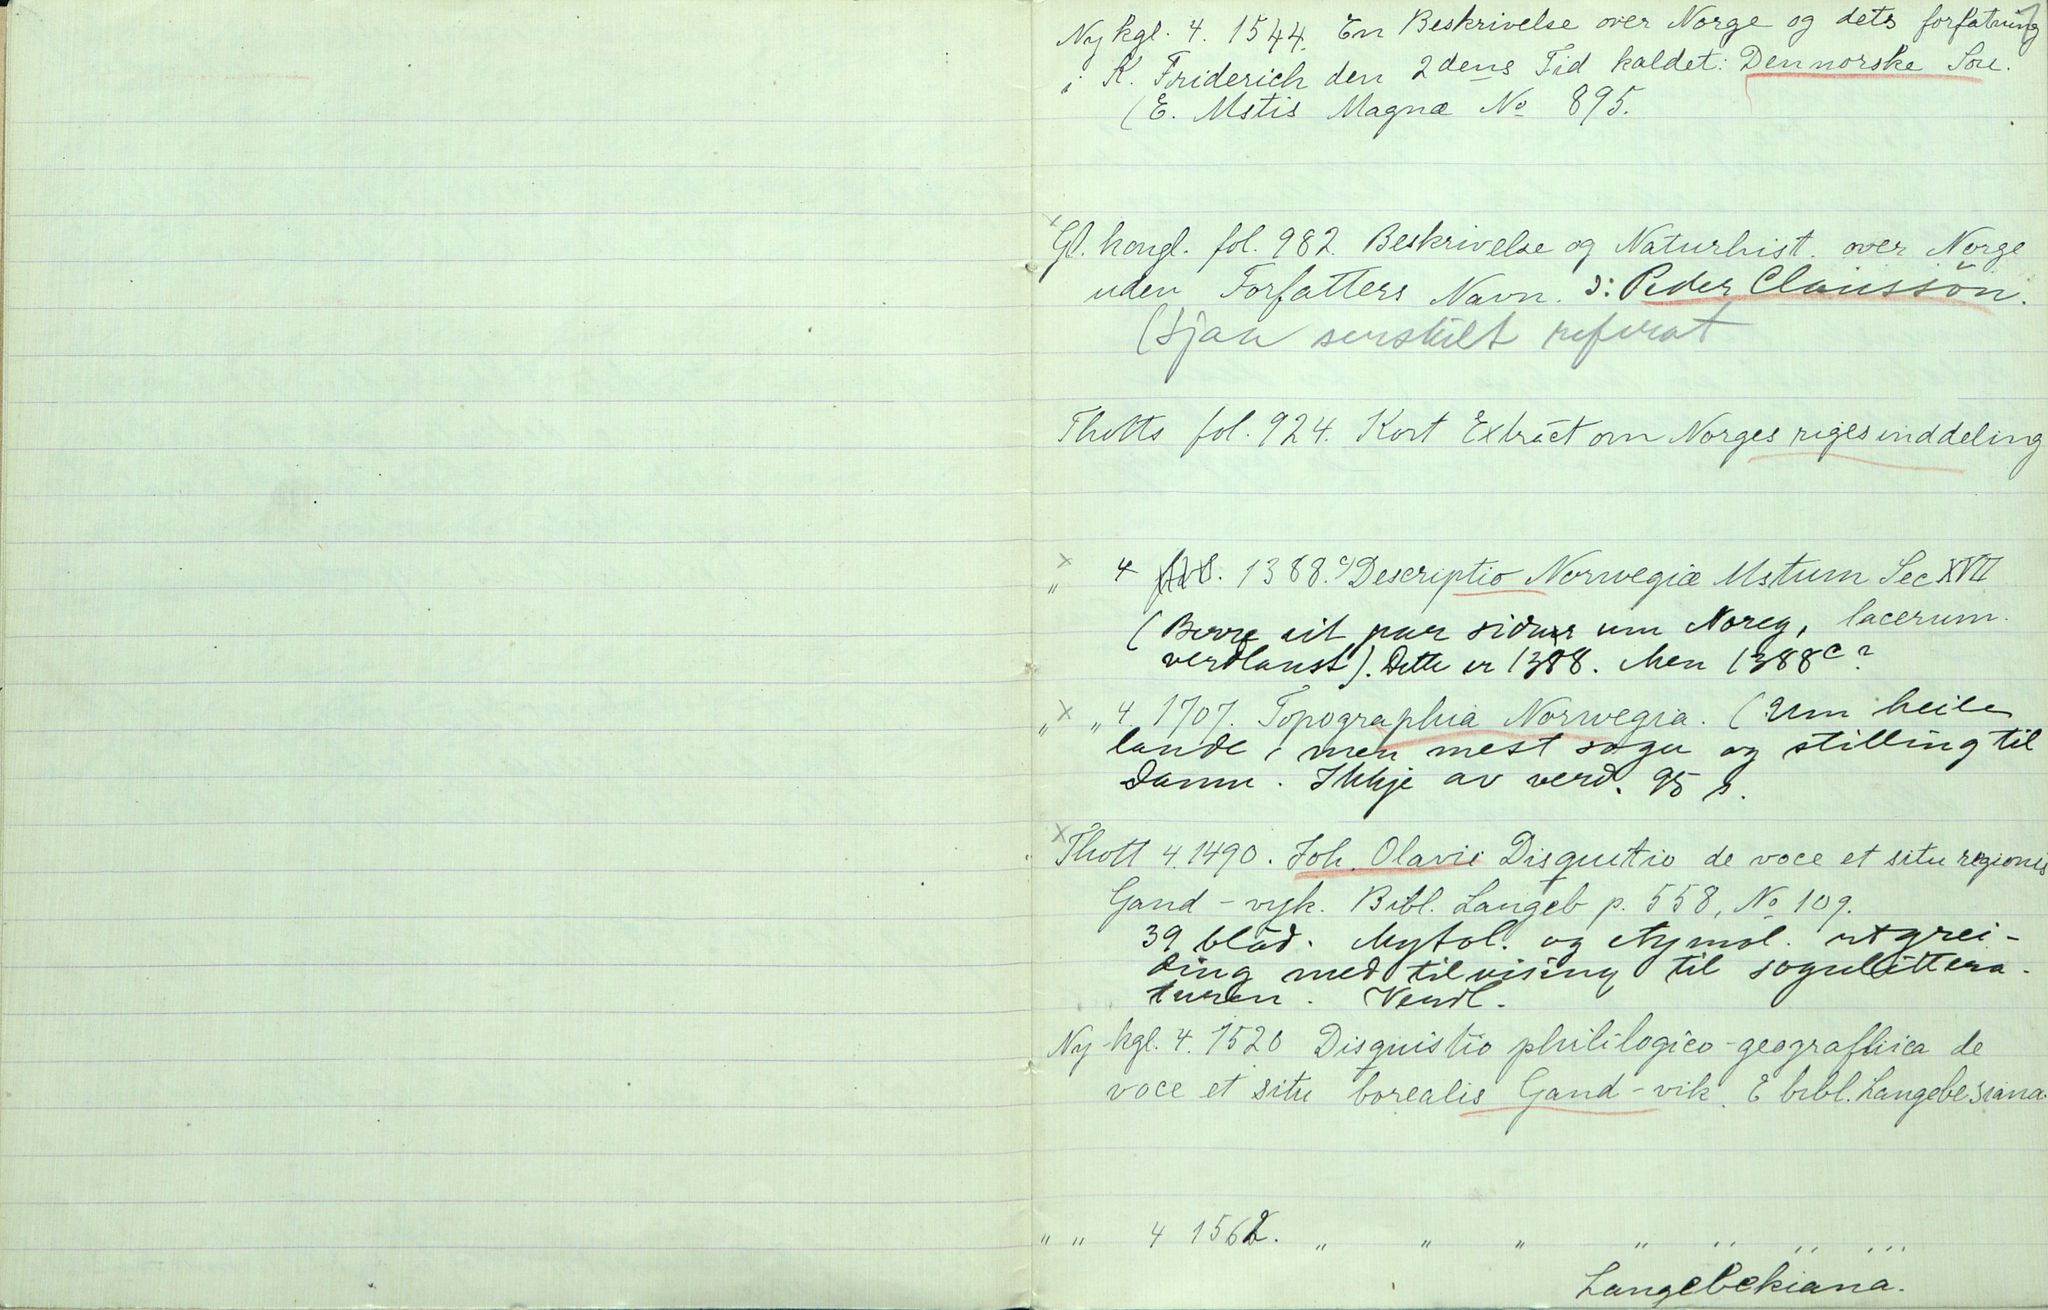 Ny kgl. 4. 1544. En Beskrivelse over Norge og dets forfatning
i K. Friderich den 2dens Tid kaldet: Den norske Soe.
(E. Mstis Magnæ No 895.
Gl. kongl. fol. 982. Beskrivelse og Naturhist. over Norge
uden Forfatters Navn. ɔ: Peder Claussön.
(sjaa serskilt referat
Thotts fol. 924. Kort Extract om Norges riges inddeling
„ 4 1388.c) Descriptio Norwegiæ Mstum Sec XVII
(Berre eit par sidur um Noreg, lacerum.
verdlaust). Dette er 1388. Men 1388c?
„ „ 4. 1707. Topographia Norwegia. (Um heile
lande, men mest sogu og stilling til
Danm. Ikkje av verd. 95 s.
Thott 4. 1490. Joh. Olavii Disquitio de voce et situ regionis
Gand-vyk. Bibl. Langeb p. 558, No 109.
39 blad. Mytol. og etymol. utgrei-
ding med tilvising til sogulittera-
turen. Verdl.
Ny kgl. 4. 1520 Disquistio phililogico-geografhica de
voce et situ borealis Gand-vik. E bibl. Langebesiana.
„ „ 4 1562. „ „ „ „ „ „ „
Langebekiana.